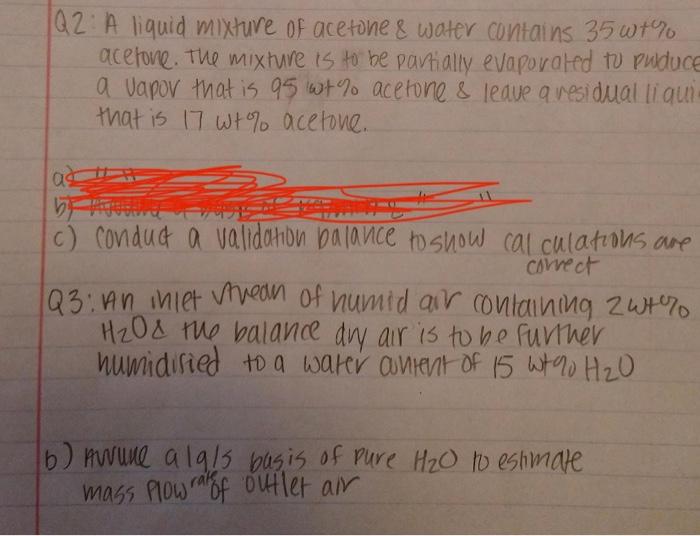 Q2: A liquid mixture of acetone & water contains 35 wt%
acetone. The mixture is to be partially evaporated to puduce
a vapor that is 95 wt% acetone & leave a residual liqui
that is 17 wt% acetone.
a)
b)
c) conduct a validation balance to show calculations are
correct
Q3: An inlet stream of humid air containing 2 wt%
H2O & the balance dry air is to be further
humidified to a water content of 15 wt% H2O
b) Assume a 1 g/s basis of pure H2O to estimate
mass flow rate of outlet air